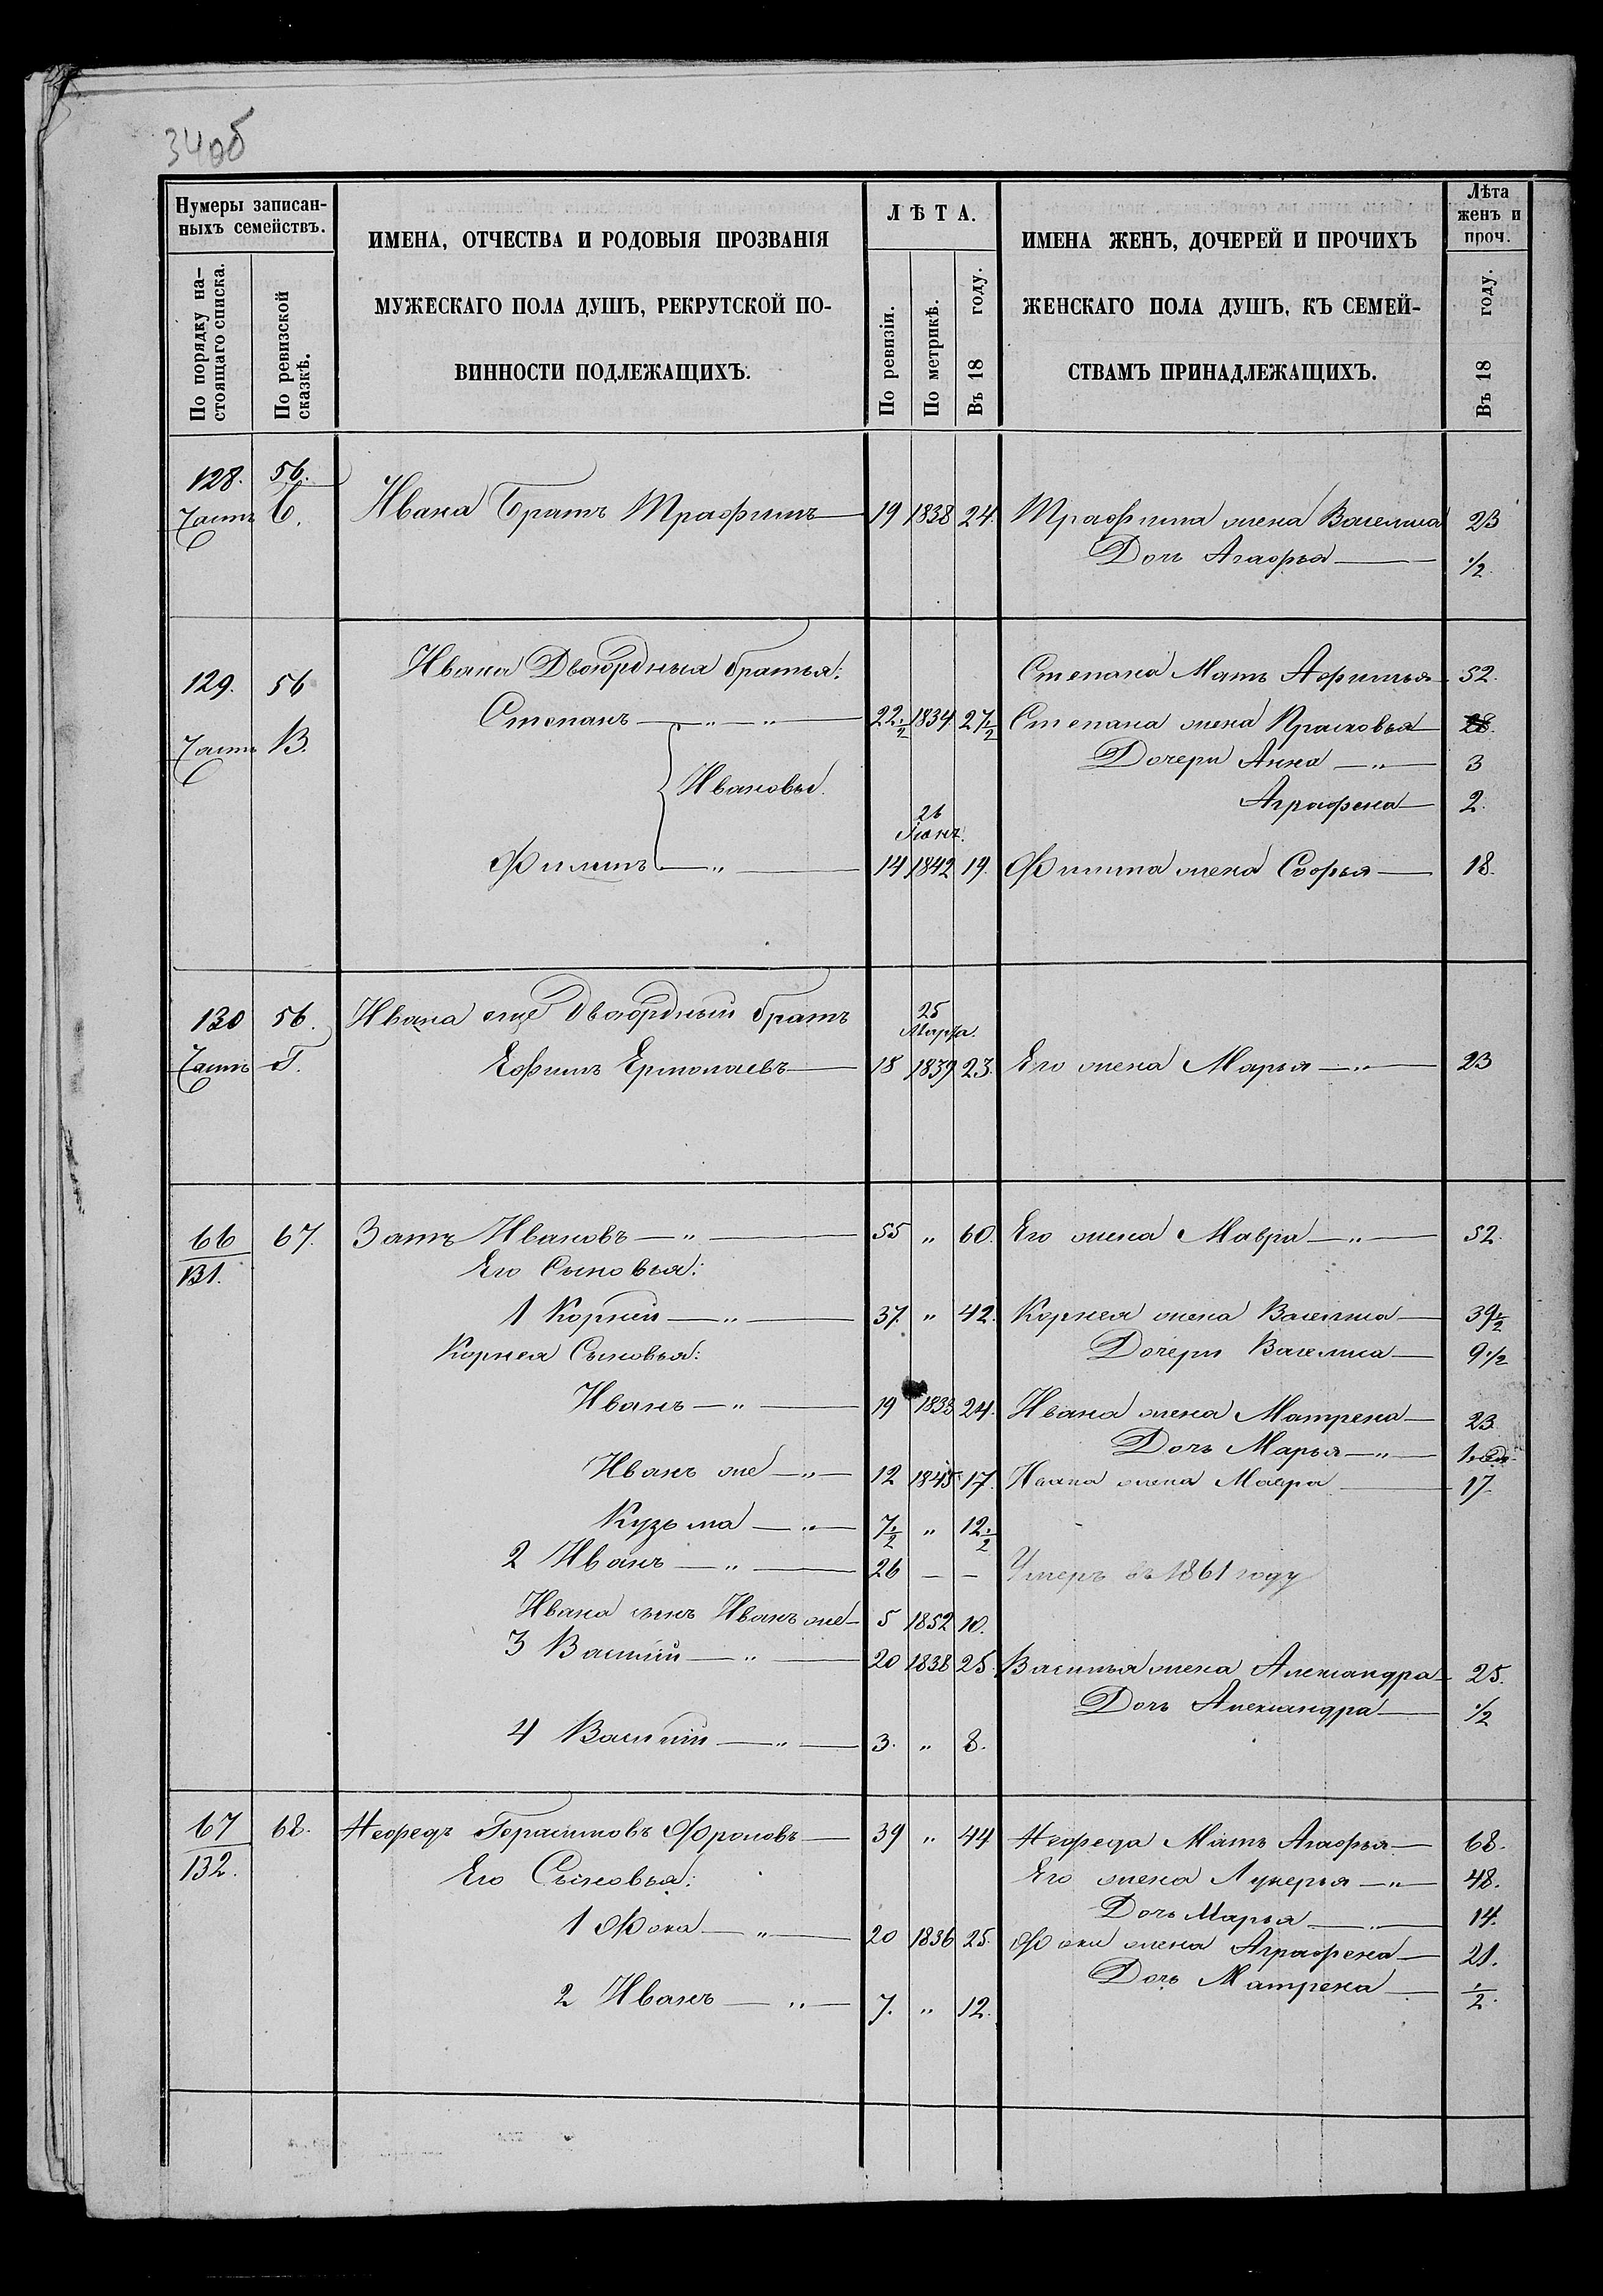 34об
Нумеры записан-
ныхъ семействъ.
По порядку на-
стоящаго списка.
По ревизской
сказкѣ.
ИМЕНА, ОТЧЕСТВА И РОДОВЫЯ ПРОЗВАНІЯ
МУЖЕСКАГО ПОЛА ДУШЪ, РЕКРУТСКОЙ ПО-
ВИННОСТИ ПОДЛЕЖАЩИХЪ.
ЛѢТА.
По ревизіи.
По метрикѣ.
Въ 18 году.
ИМЕНА ЖЕНЪ, ДОЧЕРЕЙ И ПРОЧИХЪ
ЖЕНСКАГО ПОЛА ДУШЪ, КЪ СЕМЕЙ-
СТВАМЪ ПРИНАДЛЕЖАЩИХЪ.
Лѣта
женъ и
проч.
Въ 18 году.
128. 56.
Часть Б. Ивана Братъ Трафимъ 19 1838 24. Трафима жена Васелиса 23
Дочь Агафья 1/2
Ивана Двоюрдныя братья:
129. 56 Степана Мать Афимья 52.
Степанъ — " — " 22 1/2 1834 27 1/2 Степана жена Прасковья 28.
Часть В. Дочери Анна — " 3
Ивановы. Аграфена 2.
26
Іюня.
Филипъ — " 14 1842 19. Филипа жена Софья 18.
130 56. Ивана еще двоюрдный братъ 25
Марта.
Часть Г. Ефимъ Ермолаевъ 18 1839 23. Его жена Марья — " 23
66 67. Затъ Ивановъ — " 55 " 60. Его жена Мавра — " 52.
131. Его Сыновья:
1 Корней — " 37. " 42. Корнея жена Васелиса 39 1/2
Корнея Сыновья: Дочери Васелиса 9 1/2
Иванъ — " 19 1833 24. Ивана жена Матрена 23.
Дочь Марья — "
Иванъ же — " 12 1845 17. Ивана жена Мавра 17
Кузьма — " 7 1/2 " 12 1/2
2 Иванъ — " 26 — — Умеръ въ 1861 году
Ивана сынъ Иванъ же 5 1852 10.
3 Василій — " 20 1838 25. Василья жена Александра 25.
Дочь Александра 1/2
4 Василій — " 3. " 8.
67 68. Нефедъ Герасимовъ Фроловъ 39 " 44 Нефеда Мать Агафья 68.
132. Его Сыновья: Его жена Лукерья — " 48.
Дочь Марья — " 14.
1 Фока — " 20 1836 25. Фоки жена Аграфена 21.
Дочь Матрена 1/2.
2 Иванъ — " 7. " 12.